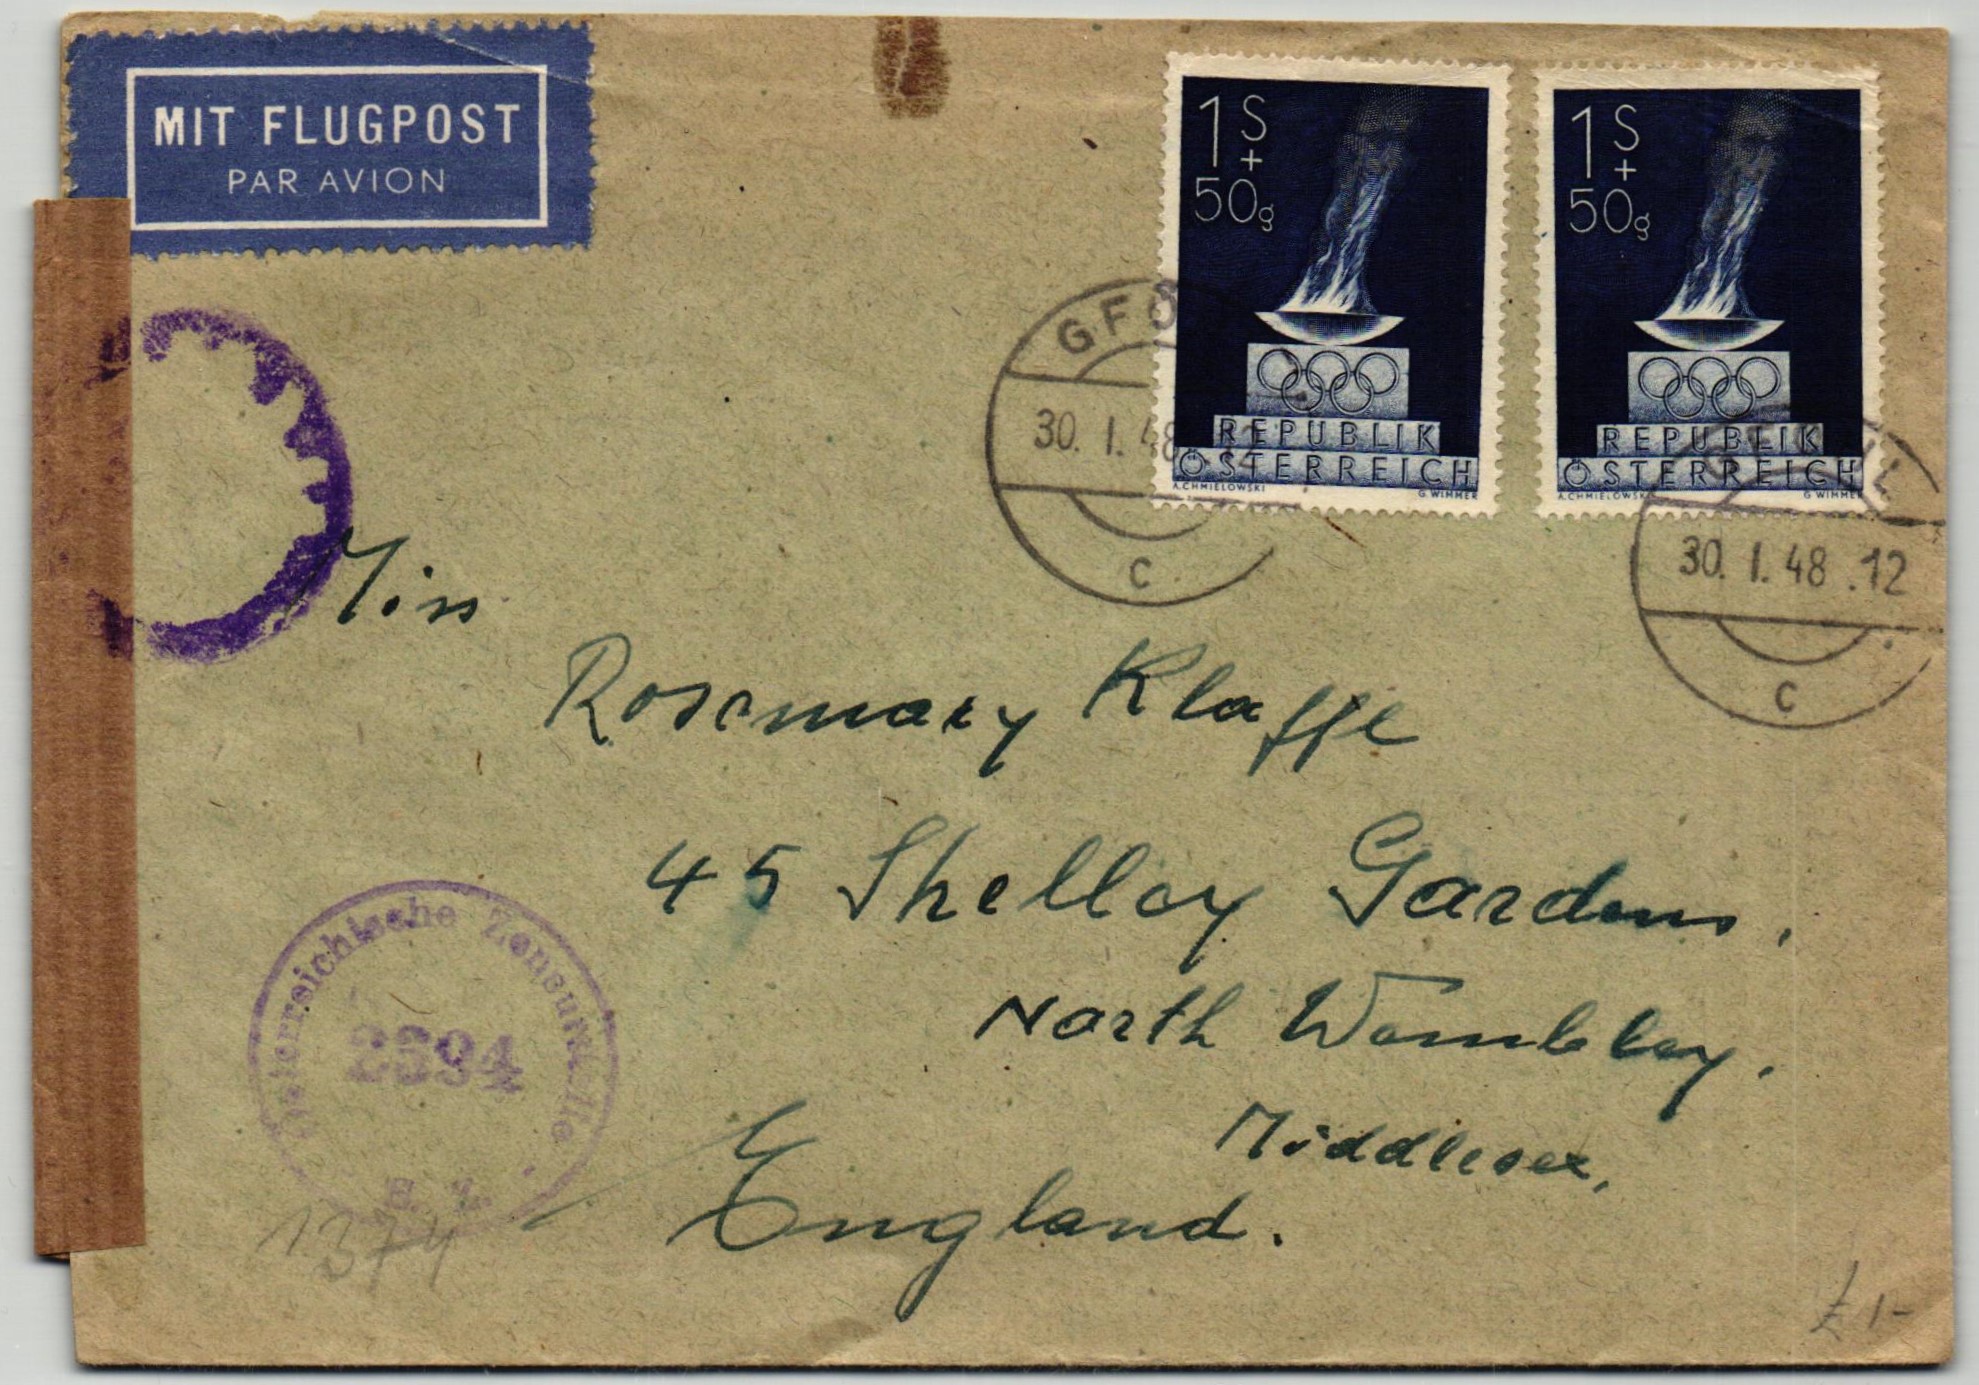 MIT FLUGPOST
PAR AVION
1 S
+
50 g
REPUBLIK
ÖSTERREICH
A. CHMIELOWSKI
G. WIMMER
1 S
+
50 g
REPUBLIK
ÖSTERREICH
A. CHMIELOWSKI
G. WIMMER
GFÖ
30. I. 48
C
30. I. 48 .12
C
Miss
Rosemary Klaffe
45 Shelley Gardens,
North Wembley,
Middlesex,
England.
Österreichische Zensurstelle
2394
1374
£ 1-